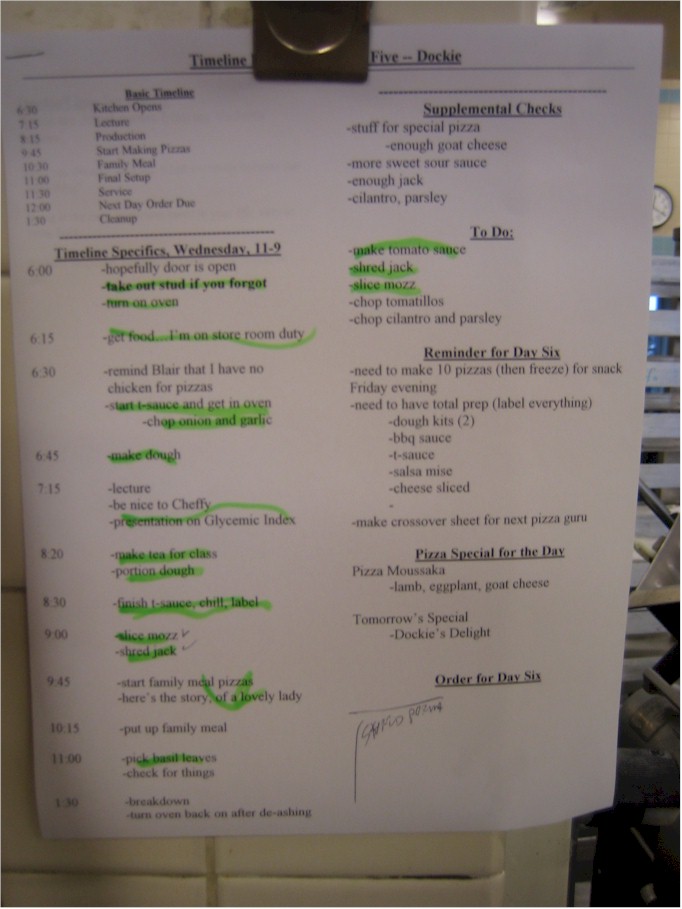 Timeline Five -- Dockie
Basic Timeline
6:30 Kitchen Opens
7:15 Lecture
8:15 Production
9:45 Start Making Pizzas
10:30 Family Meal
11:00 Final Setup
11:30 Service
12:00 Next Day Order Due
1:30 Cleanup
Timeline Specifics, Wednesday, 11-9
6:00 -hopefully door is open
-take out stud if you forgot
-turn on oven
6:15 -get food....I'm on store room duty
6:30 -remind Blair that I have no
chicken for pizzas
-start t-sauce and get in oven
-chop onion and garlic
6:45 -make dough
7:15 -lecture
-be nice to Cheffy
-presentation on Glycemic Index
8:20 -make tea for class
-portion dough
8:30 -finish t-sauce, chill, label
9:00 -slice mozz
-shred jack
9:45 -start family meal pizzas
-here's the story, of a lovely lady
10:15 -put up family meal
11:00 -pick basil leaves
-check for things
1:30 -breakdown
-turn oven back on after de-ashing
Supplemental Checks
-stuff for special pizza
-enough goat cheese
-more sweet sour sauce
-enough jack
-cilantro, parsley
To Do:
-make tomato sauce
-shred jack
-slice mozz
-chop tomatillos
-chop cilantro and parsley
Reminder for Day Six
-need to make 10 pizzas (then freeze) for snack
Friday evening
-need to have total prep (label everything)
-dough kits (2)
-bbq sauce
-t-sauce
-salsa mise
-cheese sliced
-
-make crossover sheet for next pizza guru
Pizza Special for the Day
Pizza Moussaka
-lamb, eggplant, goat cheese
Tomorrow's Special
-Dockie's Delight
Order for Day Six